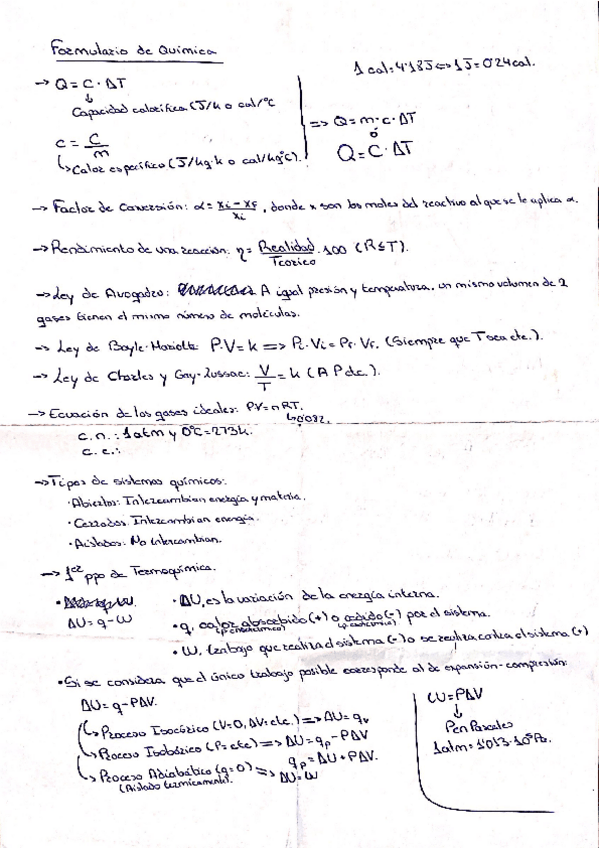 Formulario de Química
1 cal = 4'18 J <=> 1 J = 0'24 cal.
→ Q = C · ΔT
↓
Capacidad calorífica (J/k o cal/°C
c = C/m
↳ Calor específico (J/kg·k o cal/kg°C).
=> Q = m·c·ΔT
ó
Q = C · ΔT
→ Factor de Conversión: α = xi - xf / xi, donde x son los moles del reactivo al que se le aplica α.
→ Rendimiento de una reacción: η = Realidad / Teórico · 100 (R ≤ T).
→ Ley de Avogadro: A igual presión y temperatura, un mismo volumen de 2
gases tienen el mismo número de moléculas.
→ Ley de Boyle-Mariotte: P·V = k => Pi·Vi = Pf·Vf. (Siempre que T sea cte.).
→ Ley de Charles y Gay-Lussac: V/T = k (A P cte.).
→ Ecuación de los gases ideales: PV = nRT.
↳ 0'082.
c.n.: 1 atm y 0°C = 273k.
c.e.:
→ Tipos de sistemas químicos:
· Abiertos: Intercambian energía y materia.
· Cerrados: Intercambian energía.
· Aislados: No intercambian.
→ 1er ppo de Termoquímica.
ΔU = q - W
· ΔU, es la variación de la energía interna.
· q, calor absorbido (+) o cedido (-) por el sistema.
(P. endotérmico) (P. exotérmico)
· W, trabajo que realiza el sistema (-) o se realiza contra el sistema (+)
· Si se considera que el único trabajo posible corresponde al de expansión-compresión:
ΔU = q - PΔV.
↳ Proceso Isocórico (V=0, ΔV=cte.) => ΔU = qv
↳ Proceso Isobárico (P=cte) => ΔU = qp - PΔV
qp = ΔU + PΔV.
↳ Proceso Adiabático (q=0) => ΔU = W
(Aislado térmicamente)
W = PΔV
↓
P en Pascales
1 atm = 1'013·10⁵ Pa.